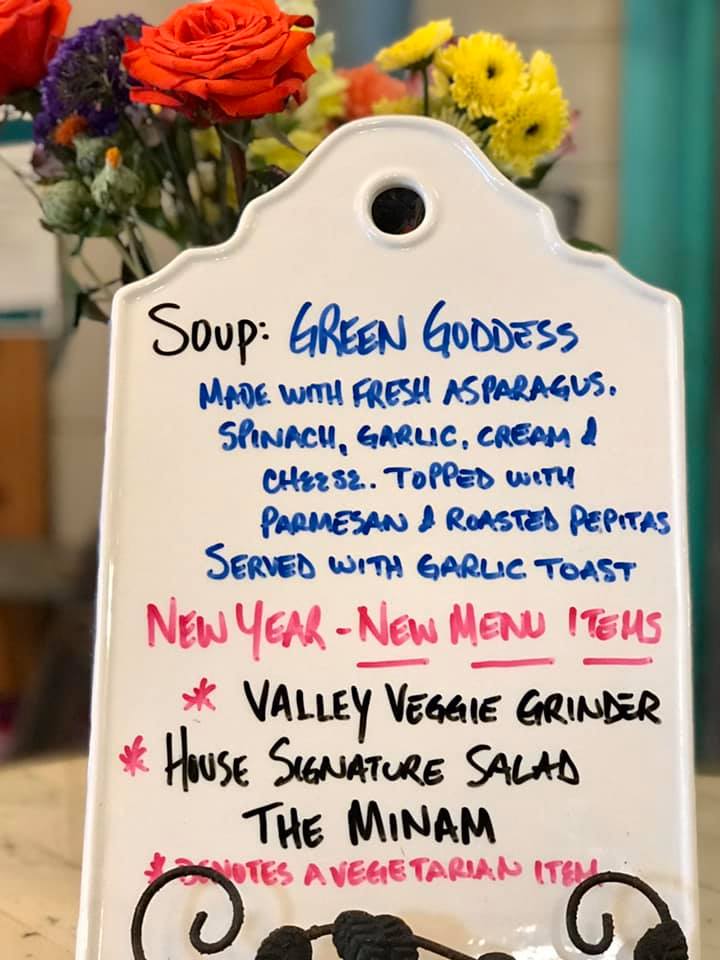 Soup: GREEN GODDESS
MADE WITH FRESH ASPARAGUS.
SPINACH, GARLIC, CREAM &
CHEESE. TOPPED WITH
PARMESAN & ROASTED PEPITAS
SERVED WITH GARLIC TOAST
NEW YEAR - NEW MENU ITEMS
* VALLEY VEGGIE GRINDER
* HOUSE SIGNATURE SALAD
THE MINAM
* DENOTES A VEGETARIAN ITEM